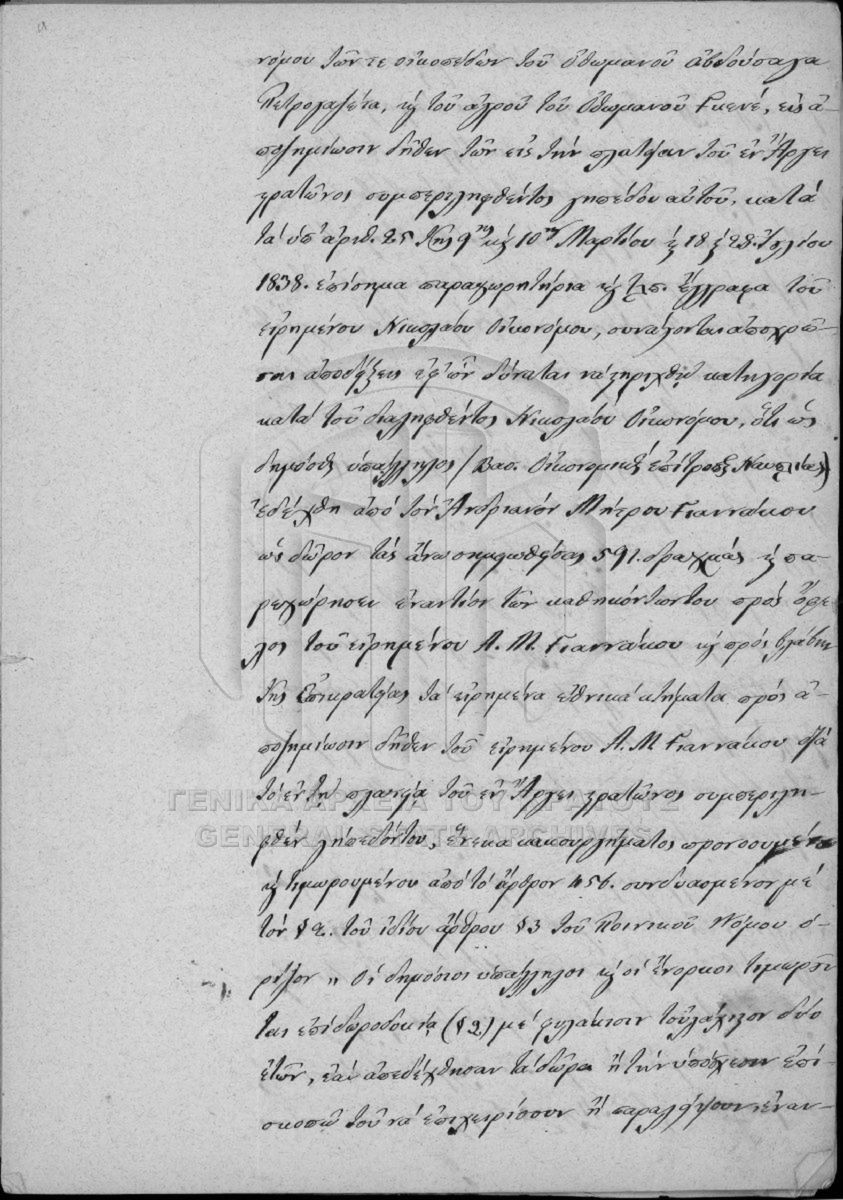 νόμου τῶν τε οἰκοπέδων τοῦ ὀθωμανοῦ ἀβδούσαγα
Πετρογαζέτα, κ τοῦ ἀγροῦ τοῦ ὀθωμανοῦ Γκενέ, εἰς ἀ-
ποζημίωσιν δῆθεν τῶν εἰς τὴν πλατεῖαν τοῦ ἐν Ἄργει
στρατῶνος συμπεριληφθέντος γηπέδου αὐτοῦ, κατὰ
τὰ ὑπ' ἀριθ. 25 τῆς 9ης κ 10ης Μαρτίου κ 18 κ 28 Ἰουλίου
1838. ἐπίσημα παραχωρητήρια κ λπ. ἔγγραφα τοῦ
εἰρημένου Νικολάου Οἰκονόμου, συνάγονται ἀποχρῶ-
σαι ἀποδείξεις ἐφ' ὧν δύναται νὰ στηριχθῇ κατηγορία
κατὰ τοῦ διαληφθέντος Νικολάου Οἰκονόμου, ὅτι ὡς
δημόσιος ὑπάλληλος / Βασ. Οἰκονομικὸς ἐπίτροπος Ναυπλίας)
ἐδέχθη ἀπὸ τὸν Ἀνδριανὸν Μήτρου Γιαννάκου
ὡς δῶρον τὰς ἄνω σημειωθείσας 591. δραχμὰς κ πα-
ρεχώρησεν ἐναντίον τῶν καθηκόντων του πρὸς ὄφε-
λος τοῦ εἰρημένου Α. Μ. Γιαννάκου κ πρὸς βλάβην
τῆς Ἐπικρατείας τὰ εἰρημένα ἐθνικὰ κτήματα πρὸς ἀ-
ποζημίωσιν δῆθεν τοῦ εἰρημένου Α. Μ Γιαννάκου διὰ
τὸ ἐν τῇ πλατείᾳ τοῦ ἐν Ἄργει στρατῶνος συμπεριλη-
φθὲν γήπεδόν του, ἕνεκα κακουργήματος προνοουμένου
κ τιμωρουμένου ἀπὸ τὸ ἄρθρον 456. συνδυασμένον μὲ
τὸν § 2. τοῦ ἰδίου ἄρθρου § 3 τοῦ Ποινικοῦ Νόμου ὁ-
ρίζον „ Οἱ δημόσιοι ὑπάλληλοι κ οἱ ἔνορκοι τιμωροῦν
ται ἐπὶ δωροδοκίᾳ (§ 2) μὲ φυλάκισιν τοὐλάχιστον δύο
ἐτῶν, ἐὰν ἀπεδέχθησαν τὰ δῶρα ἢ τὴν ὑπόσχεσιν ἐπὶ
σκοπῷ τοῦ νὰ ἐπιχειρίσουν ἢ παραλείψουν, ἐναν-
ΓΕΝΙΚΑ ΑΡΧΕΙΑ ΤΟΥ ΚΡΑΤΟΥΣ
GENERAL STATE ARCHIVES